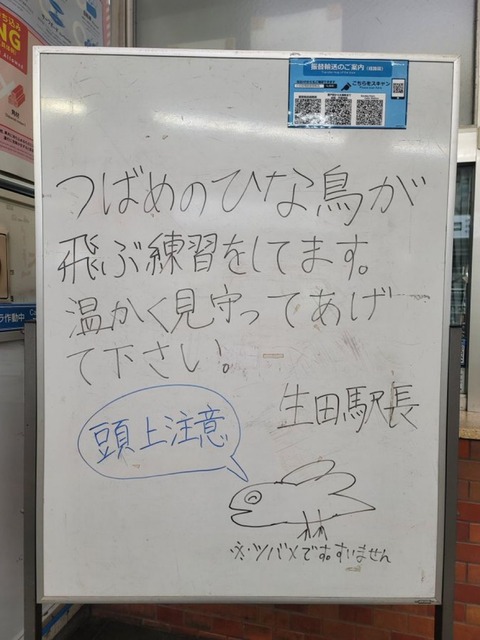 振替輸送のご案内
こちらをスキャン
つばめのひな鳥が
飛ぶ練習をしてます。
温かく見守ってあげ
て下さい。
生田駅長
頭上注意
※ツバメです。すいません
作動中
NG